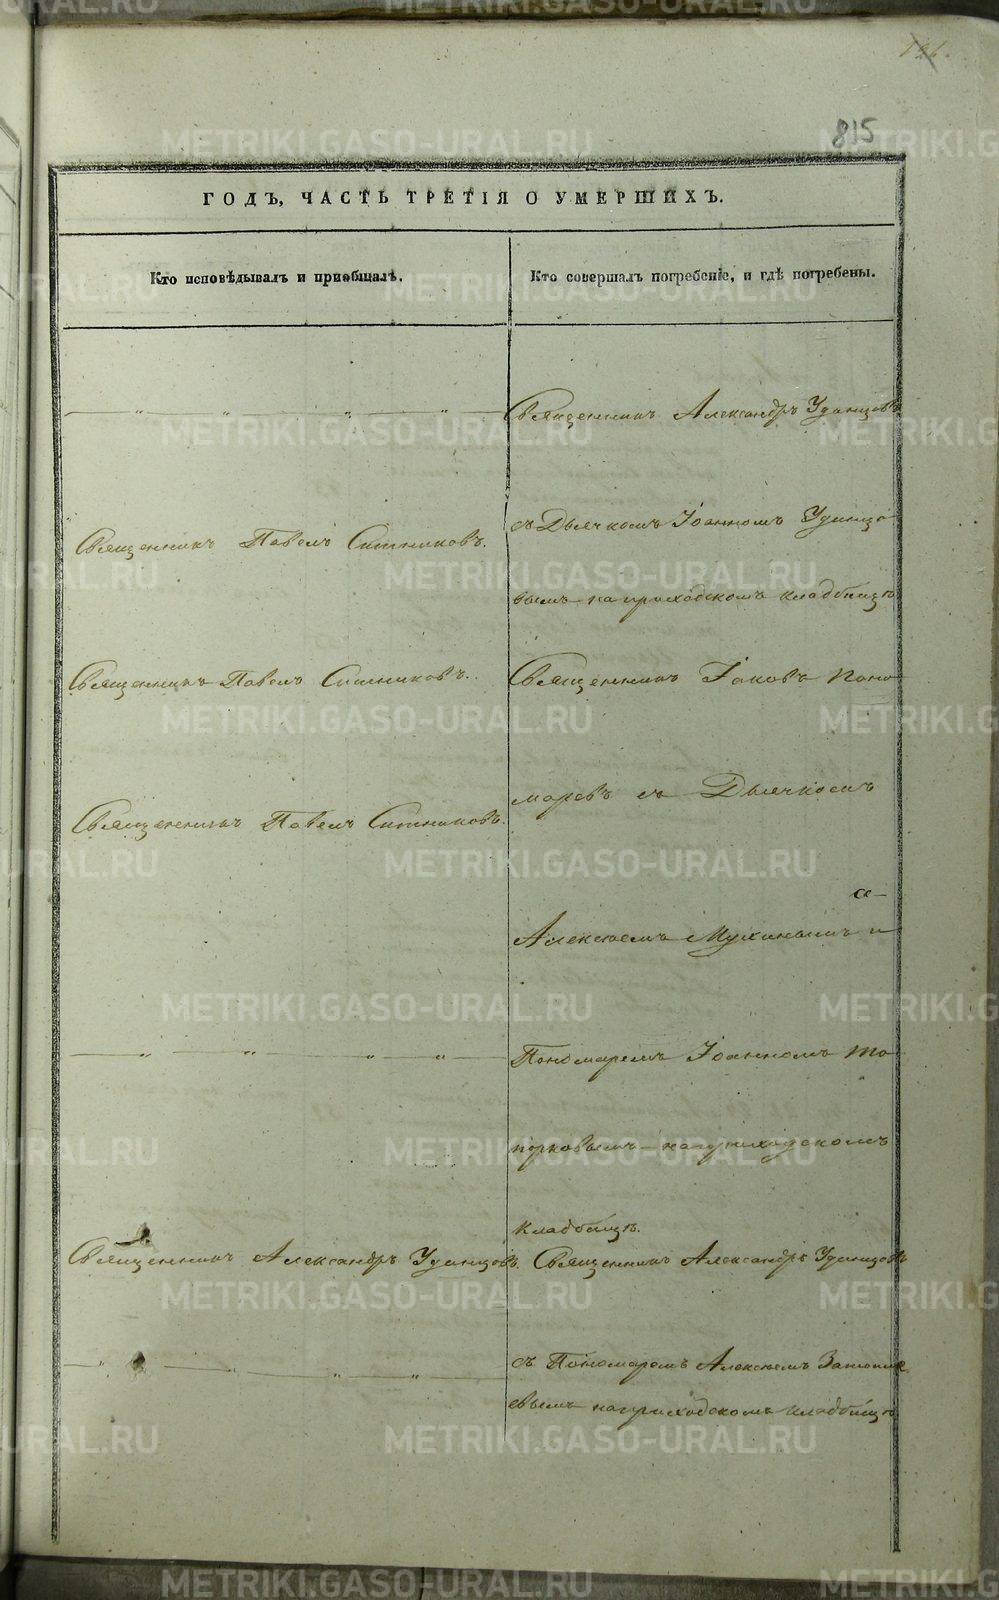 126.
815
ГОДЪ, ЧАСТЬ ТРЕТІЯ О УМЕРШИХЪ.
Кто исповѣдывалъ и приобщалъ.
Кто совершалъ погребеніе, и гдѣ погребены.
Священникъ Александръ Удинцовъ
съ Дьячкомъ Іоанномъ Удинцо-
вымъ на приходскомъ кладбищѣ
Священникъ Павелъ Ситниковъ.
Священникъ Павелъ Ситниковъ.
Священникъ Іаковъ Поно-
маревъ съ Дьячкомъ
Священникъ Павелъ Ситниковъ.
Алексѣемъ Мухинымъ и
Пономаремъ Іоанномъ То-
порковымъ на приходскомъ
кладбищѣ.
Священникъ Александръ Удинцовъ.
Священникъ Александръ Удинцовъ
съ Пономаремъ Алексѣемъ
евымъ на приходскомъ кладбищѣ
METRIKI.GASO-URAL.RU